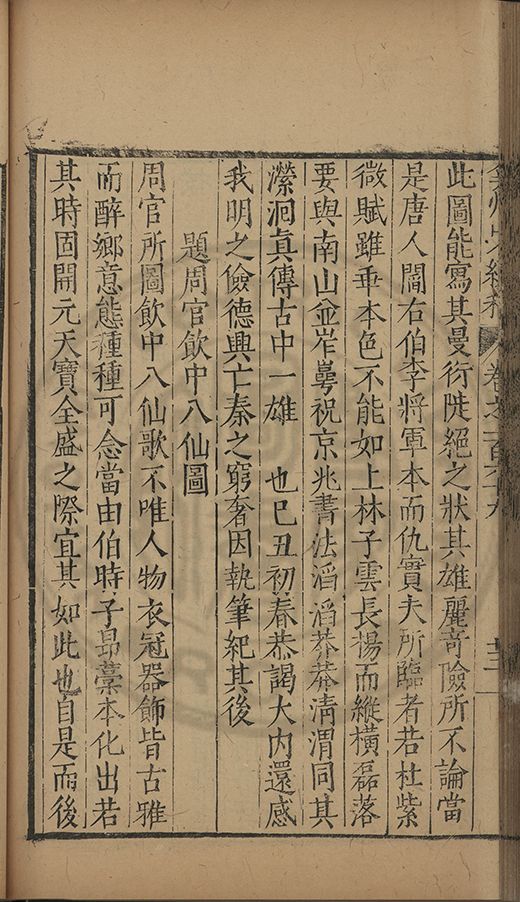 卷之一百六十九
此圖能寫其曼衍陡絕之狀其雄麗竒險所不論當
是唐人間右伯李將軍本而仇實夫所臨者若杜紫
微賦雖垂本色不能如上林子雲長楊而縱橫磊落
要與南山並岸粤祝京兆書法滔滔莽莽清渭同其
瀠洄真傳古中一雄 也已丑初春恭謁大內還感
我明之儉德興亡秦之窮奢因執筆紀其後
題周官飲中八仙圖
周官所圖飲中八仙歌不唯人物衣冠器飾皆古雅
而醉鄉意態種種可念當由伯時子昂藁本化出若
其時固開元天寶全盛之際宜其如此也自是而後